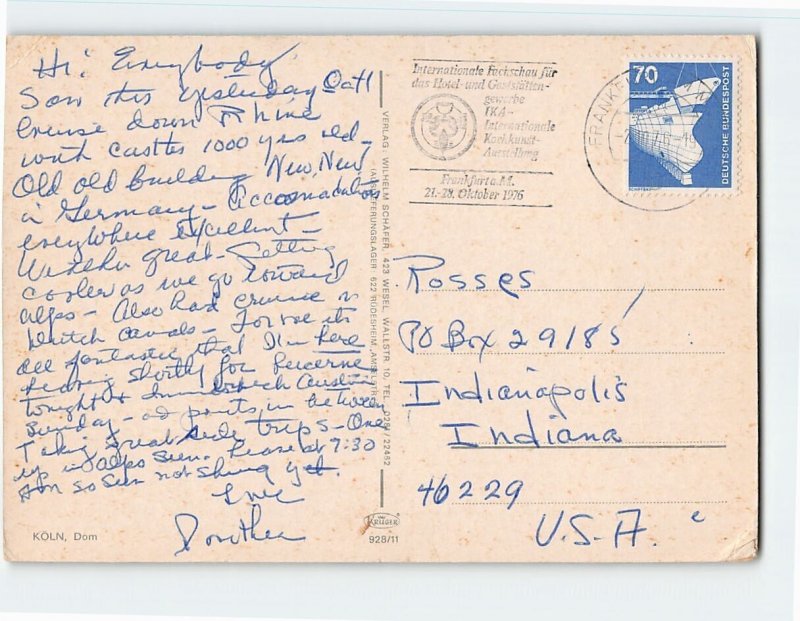 Hi! Everybody
Saw this yesterday Oct 1
Cruise down Rhine
with castles 1000 yrs old -
Old old building New, New
in Germany - Accomadation
everywhere Excellent -
Weather great - Getting
cooler as we go toward
alps - Also had cruise in
Dutch Canals - Love it
all fantastic that I'm here
Leaving shortly for Lucerne
tonight & Innsbruck Austria
Sunday - points in between
Taking great side trips - One
up in Alps seen. Leave at 7:30
so not shing yet.
Love
Dorothea
KÖLN, Dom
VERLAG WILHELM SCHÄFER, 423 WESEL, WALLSTR. 10, TEL. 0281/22462
AUSLIEFERUNGSLAGER: 622 RÜDESHEIM, AMSELSTR.
KRÜGER
928/11
Internationale Fachschau für
das Hotel- und Gaststätten-
gewerbe
IKA-
Internationale
Kochkunst-
Ausstellung
Frankfurt a. M.
21.-28. Oktober 1976
FRANKFU
70
DEUTSCHE BUNDESPOST
Rosses
PO Box 29185
Indianapolis
Indiana
46229
U.S.A.